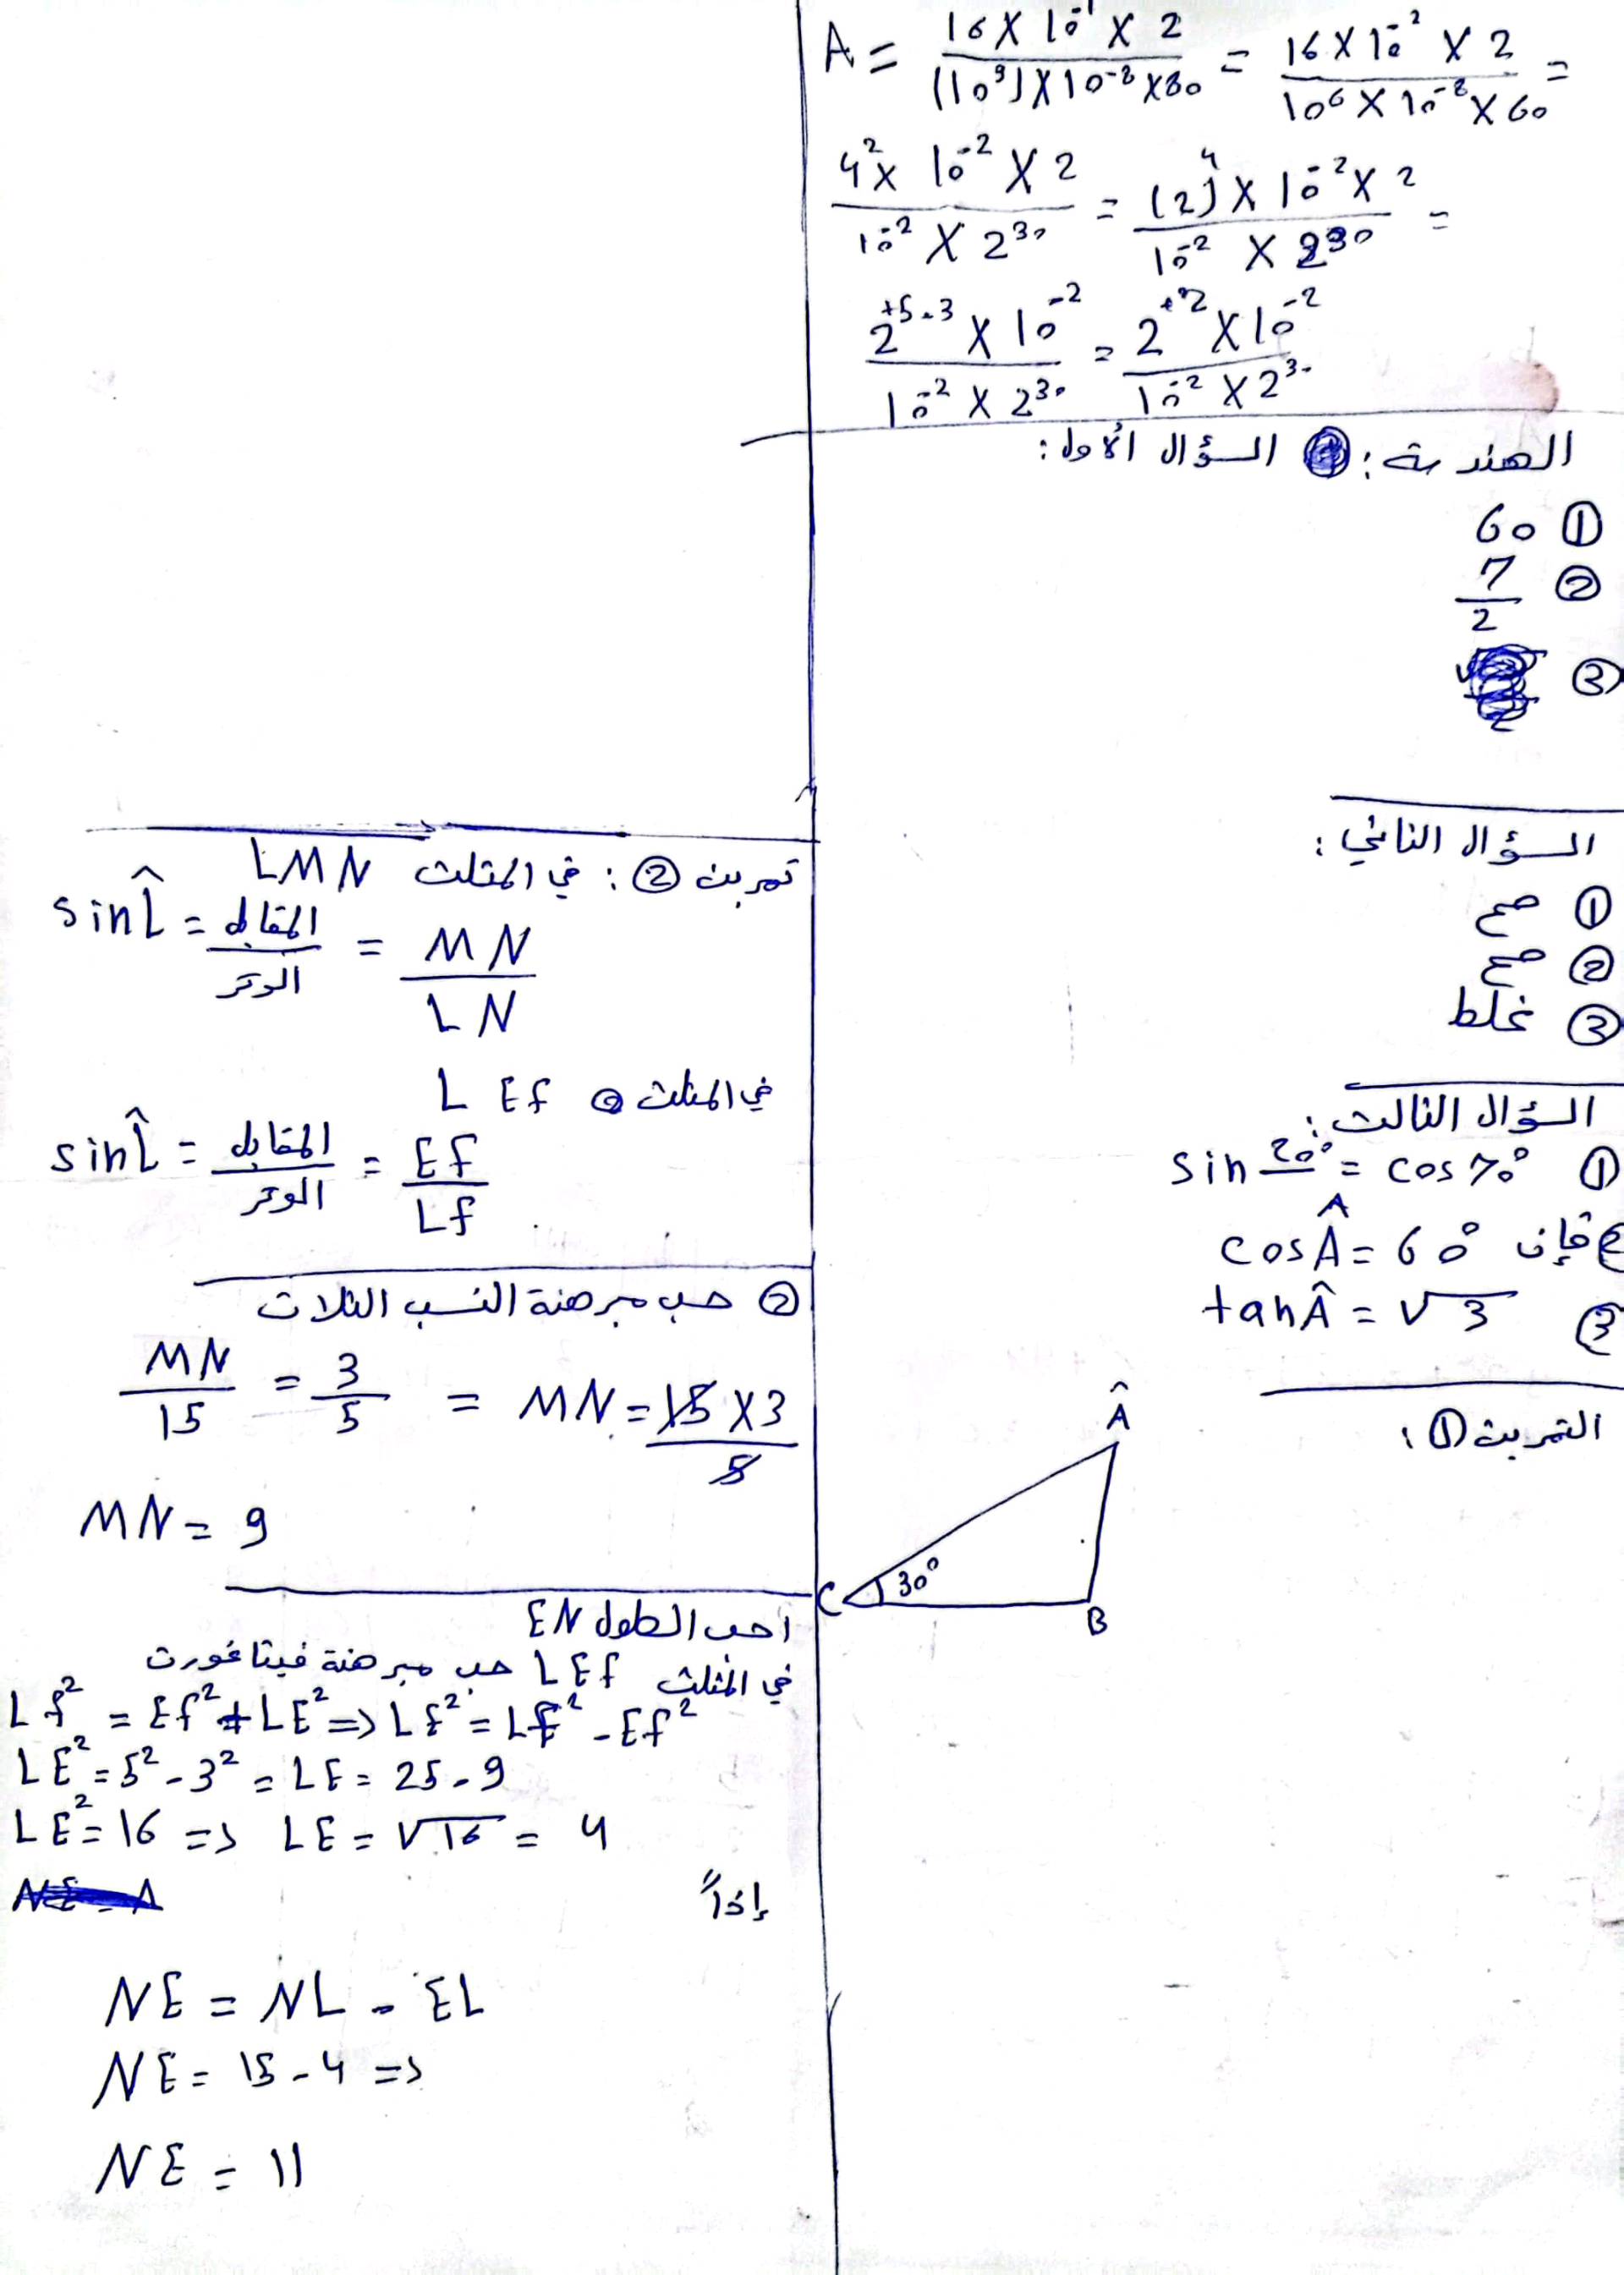 A = 16 X 10⁻¹ X 2 / (10³) X 10⁻⁸ X 80 = 16 X 10⁻² X 2 / 10⁶ X 10⁻⁸ X 60 =
4² X 10⁻² X 2 / 10⁻² X 2³⁰ = (2)⁴ X 10⁻² X 2 / 10⁻² X 2³⁰ =
2⁺⁵⁻³ X 10⁻² / 10⁻² X 2³⁰ = 2⁺² X 10⁻² / 10⁻² X 2³⁰
الهندسة : السؤال الأول :
① 60
② 7/2
③
السؤال الثاني :
① صح
② صح
③ غلط
السؤال الثالث :
① sin 20° = cos 70°
② فإن cos Â = 60°
③ tan Â = √3
التمرين ① :
Â
30°
C
B
تمرين ② : في المثلث LMN
sin L̂ = المقابل / الوتر = MN / LN
في المثلث L Ef
sin L̂ = المقابل / الوتر = Ef / Lf
② حسب مبرهنة النسب الثلاث
MN / 15 = 3 / 5 = MN = 15 X 3 / 5
MN = 9
احسب الطول EN
في المثلث LEf حسب مبرهنة فيتاغورث
Lf² = Ef² + LE² => Lf² = LE² - Ef²
LE² = 5² - 3² = LE = 25 - 9
LE² = 16 => LE = √16 = 4
إذاً
NE = NL - EL
NE = 15 - 4 =>
NE = 11